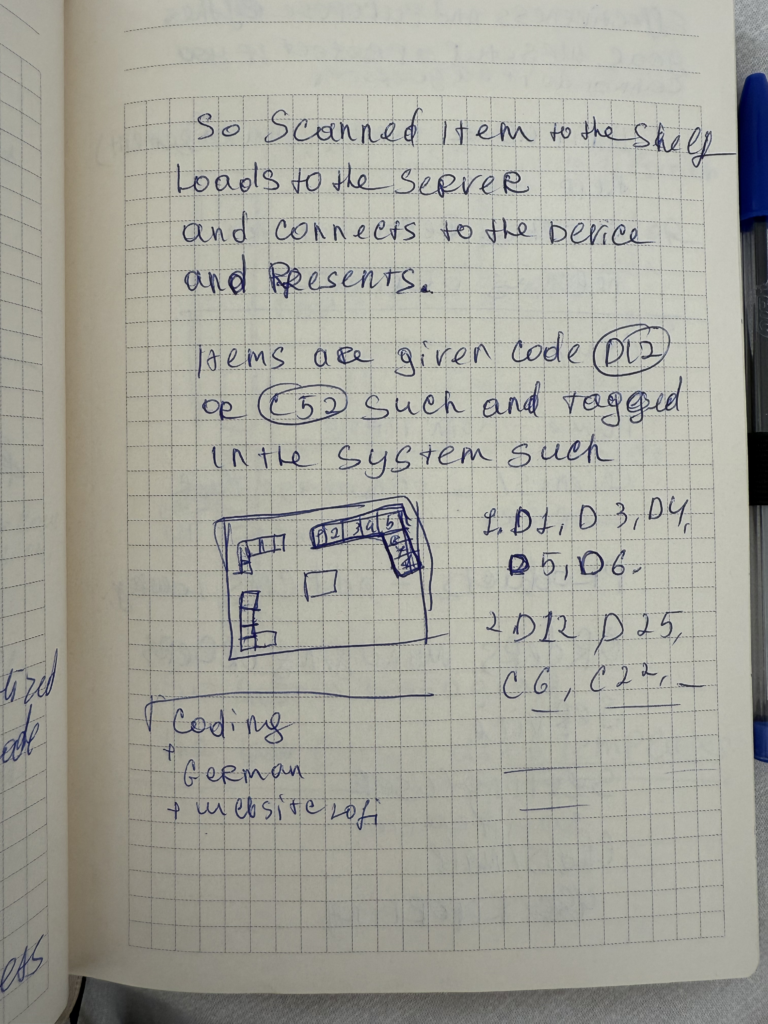 So Scanned Item to the Shelf
Loads to the Server
and connects to the Device
and Presents.
Items are given code D12
or C52 such and tagged
in the system such
1 2 3 4 5
1. D1, D 3, D4,
D5, D6.
2 D12 D 25,
C 6, C 22,
Coding
+ German
+ website